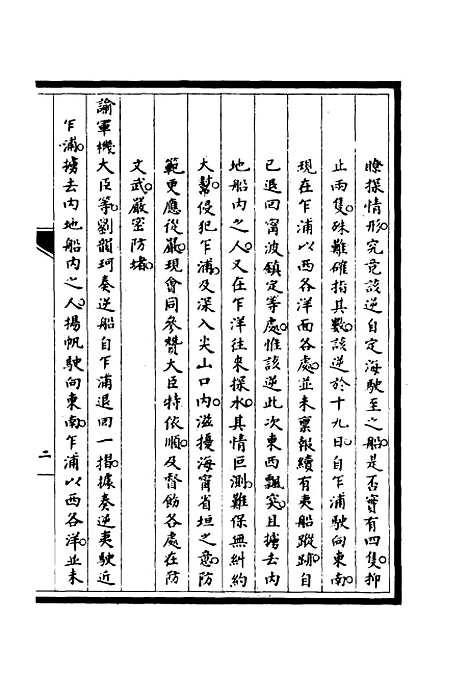 瞭探情形究竟該逆自定海駛至之船是否實有四隻抑
止兩隻殊難確指其數該逆於十九日自乍浦駛向東南
現在乍浦以西各洋面各處並未稟報續有夷船蹤跡自
已退回甯波鎮定等處惟該逆此次東西飄突且擄去內
地船內之人又在乍洋往來探水其情叵測難保無糾約
大幫侵犯乍浦及深入尖山口內滋擾海甯省垣之意防
範更應從嚴現會同參贊大臣特依順及督飭各處在防
文武嚴密防堵
諭軍機大臣等劉韻珂奏逆船自乍浦退回一摺據奏逆夷駛近
乍浦擄去內地船內之人揚帆駛向東南乍浦以西各洋並未
二